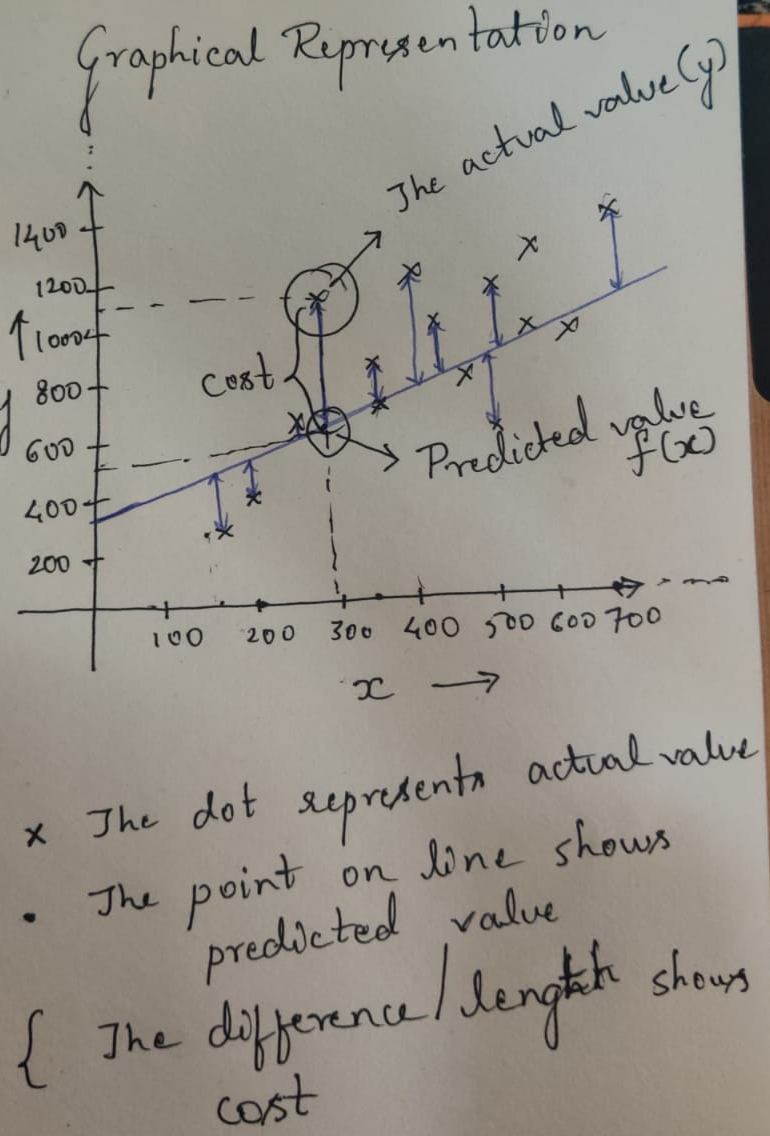 Graphical Representation
The actual value (y)
1400
1200
1000
cost
800
y
600
Predicted value
f(x)
400
200
100 200 300 400 500 600 700
x
x The dot represents actual value
• The point on line shows
predicted value
{ The difference/length shows
cost